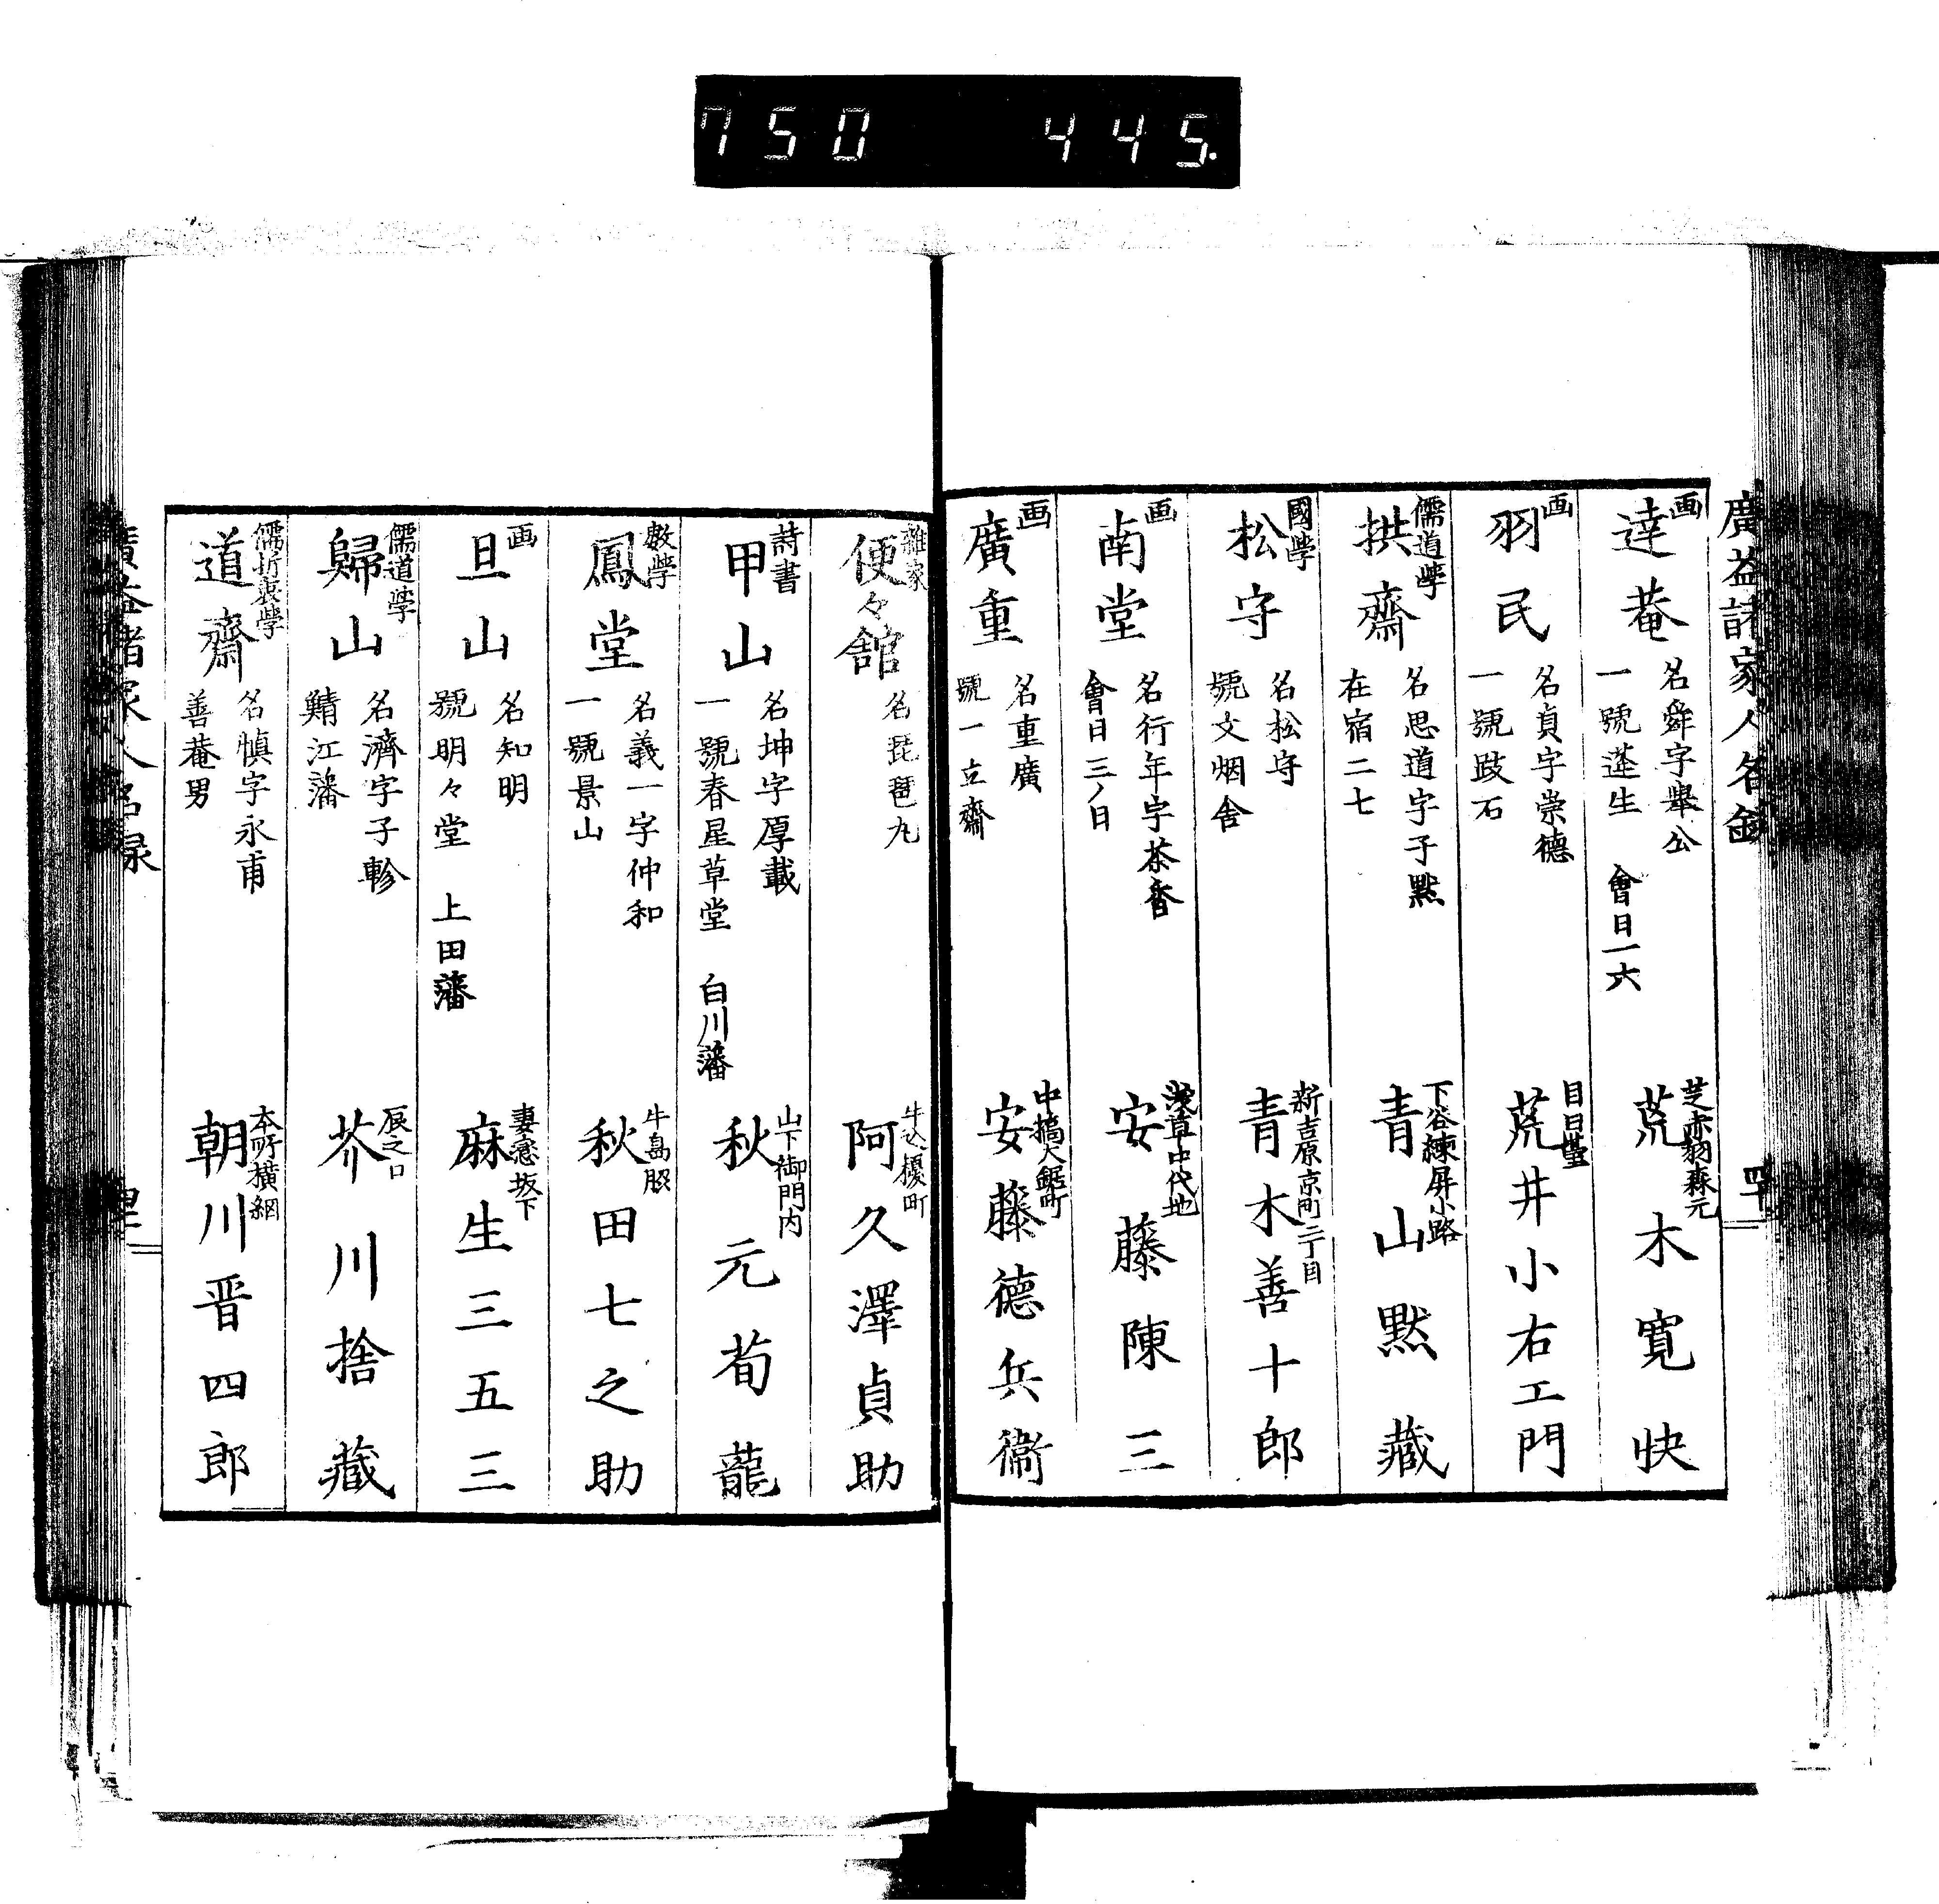 750 445.
廣益諸家人名録
画
達菴
名舜字舉公
一號蓬生 會日一六
芝赤羽森元
荒木寛快
画
羽民
名貞字崇德
一號跂石
荒井小右エ門
儒道學
拱齋
名思道字子默
在宿二七
下谷練屏小路
青山默藏
國學
松守
名松守
號文烟舎
新吉原京町二丁目
青木善十郎
画
南堂
名行年字茶香
會日三ノ日
淺草中代地
安藤陳三
画
廣重
名重廣
號一立齋
中橋大鋸町
安藤德兵衞
雜家
便々舘
名琵琶丸
牛込榎町
阿久澤貞助
詩書
甲山
名坤字厚載
一號春星草堂 白川藩
山下御門内
秋元荀龍
數學
鳳堂
名義一字仲和
一號景山
牛島
秋田七之助
画
旦山
名知明
號明々堂 上田藩
妻戀坂下
麻生三五三
儒道學
歸山
名濟字子軫
鯖江藩
辰之口
芥川捨藏
儒折衷學
道齋
名愼字永甫
善菴男
本所横網
朝川晋四郎
廣益諸家人名録